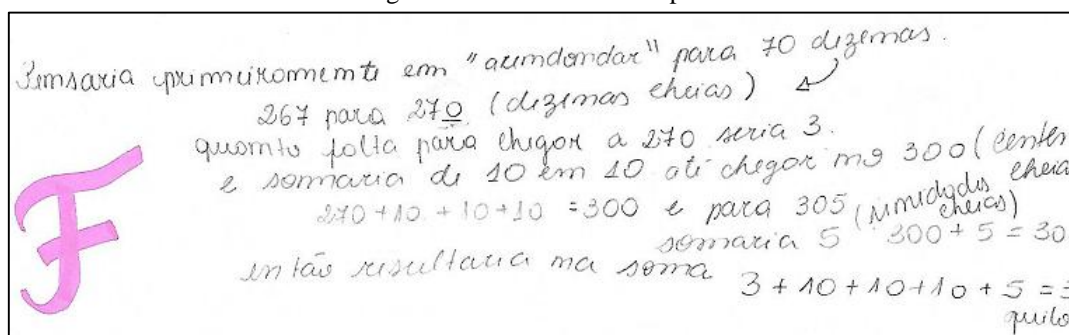 Pensaria primeiramente em "arredondar" para 70 dezenas.
267 para 270 (dezenas cheias)
quanto falta para chegar a 270 seria 3.
e somaria de 10 em 10 até chegar no 300 (centen
cheia
270 + 10 + 10 + 10 = 300 e para 305 (unidades
cheias)
somaria 5 300 + 5 = 30
então resultaria na soma 3 + 10 + 10 + 10 + 5 = 3
quilo
F